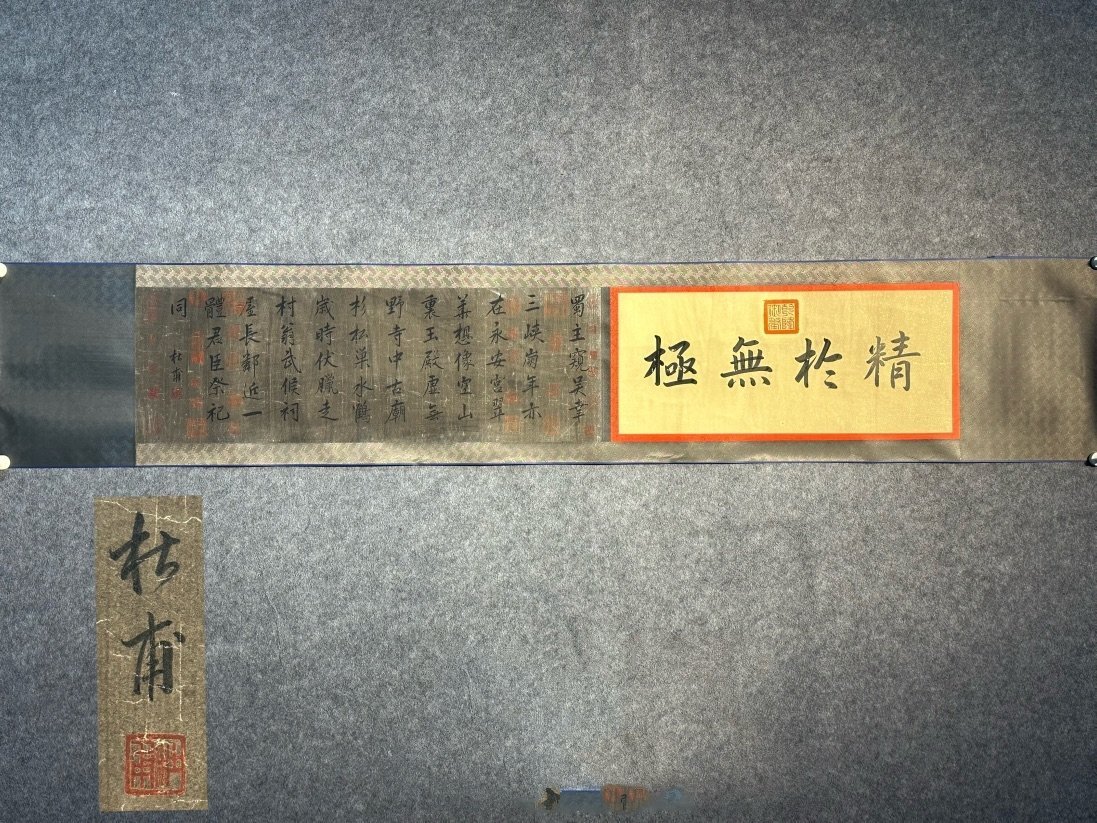 精於無極
蜀主窺吳幸
三峽崩年亦
在永安宮翠
華想像空山
裏玉殿虛無
野寺中古廟
杉松巢水鶴
歲時伏臘走
村翁武侯祠
屋長鄰近一
體君臣祭祀
同
杜甫
杜甫